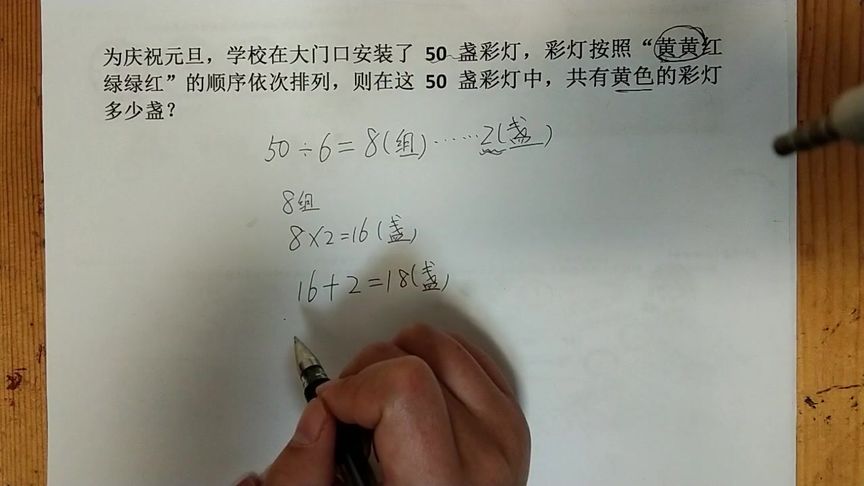 为庆祝元旦，学校在大门口安装了 50 盏彩灯，彩灯按照“黄黄红
绿绿红”的顺序依次排列，则在这 50 盏彩灯中，共有黄色的彩灯
多少盏？
50÷6=8(组)……2(盏)
8组
8×2=16(盏)
16+2=18(盏)